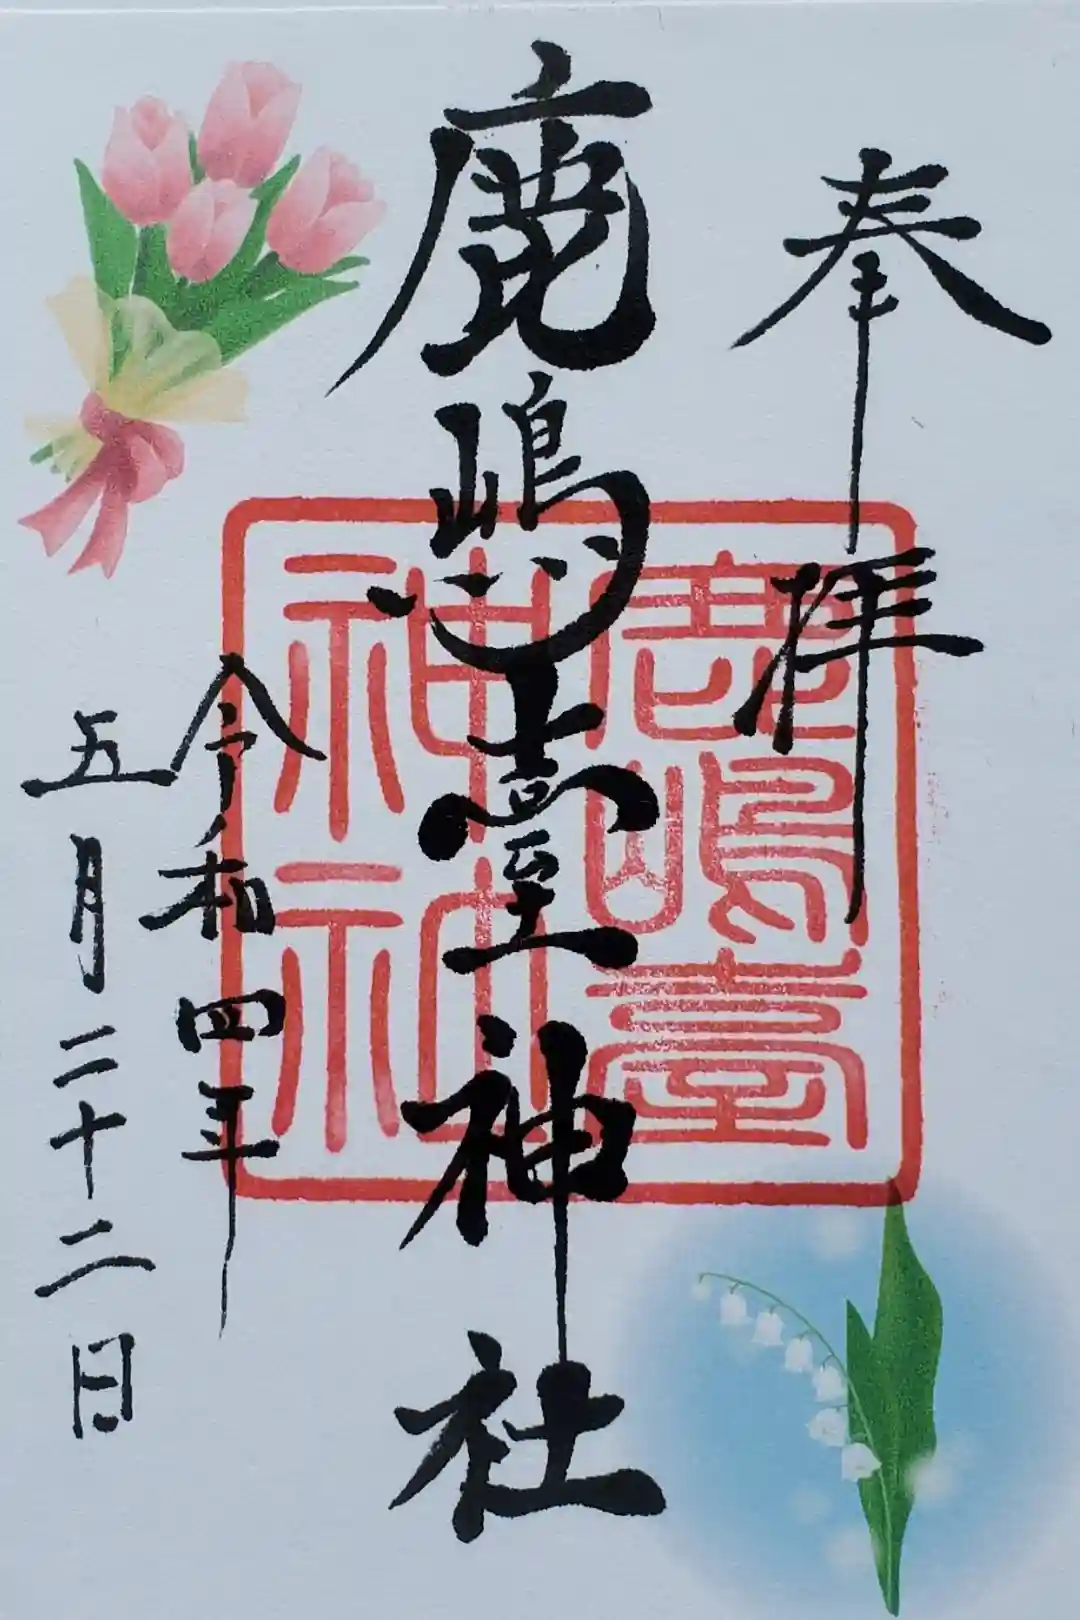 奉拝
鹿嶋臺神社
令和四年
五月二十二日
鹿嶋臺
神社